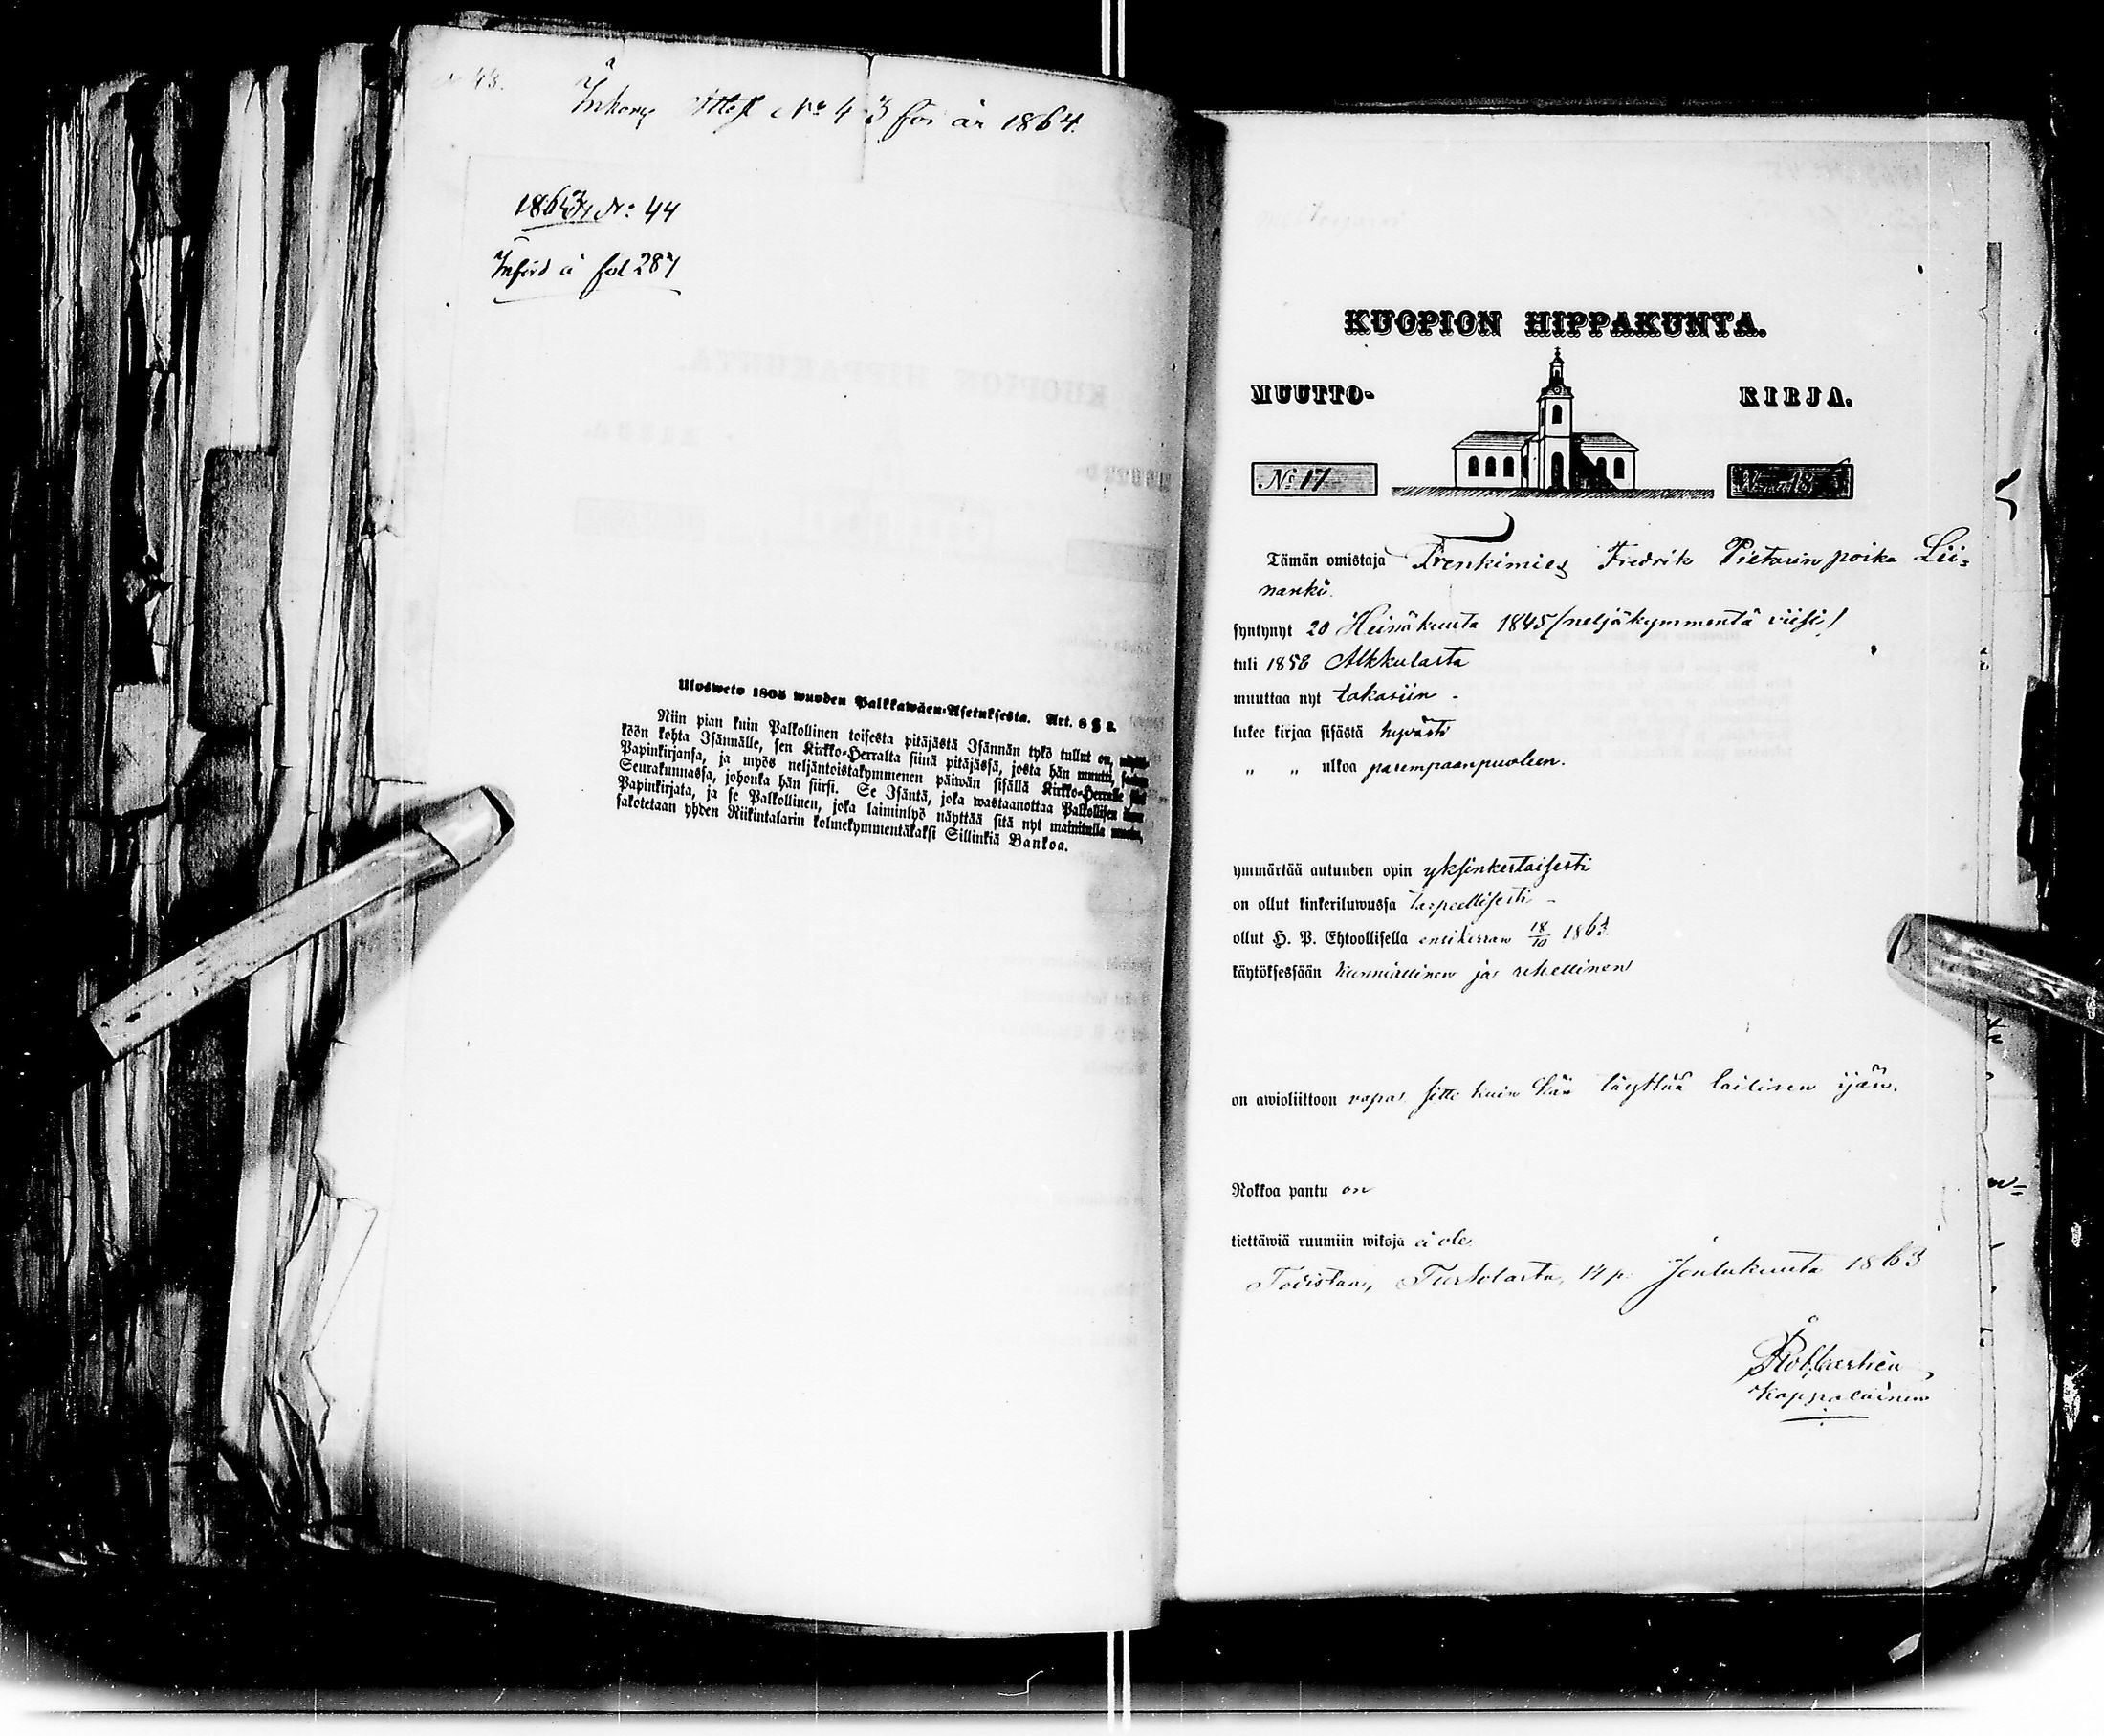 Inkomg Attest No 43 för år 1864.
1863 No 44
Införd å fol 287
Ulosweto 1805 wuoden Palkkawäen-Asetuksesta. Art. 8 § 2.
Niin pian kuin Palkollinen toisesta pitäjästä Isännän tykö tullut on,
köön kohta Isännälle, sen Kirkko-Herralta siinä pitäjässä, josta hän muutti,
Papinkirjansa, ja myös neljäntoistakymmenen päiwän sisällä Kirkko-Herralle
Seurakunnassa, johonka hän siirsi. Se Isäntä, joka wastaanottaa Palkollisen
Papinkirjata, ja se Palkollinen, joka laiminlyö näyttää sitä nyt mainitulla
sakotetaan yhden Riikintalarin kolmekymmentäkaksi Sillinkiä Bankoa.
KUOPION HIPPAKUNTA.
MUUTTO- KIRJA.
No 17
Tämän omistaja Trenkimies Fredrik Pietarin poika Lii-
nanki
syntynyt 20 Heinäkuuta 1845 /neljäkymmentä viisi/
tuli 1858 Alkkulasta
muuttaa nyt takasiin -
lukee kirjaa sisästä hyvästi
" " ulkoa parempaanpuoleen.
ymmärtää autuuden opin yksinkertaisesti
on ollut kinkeriluwussa tarpeellisesti -
ollut H. P. Ehtoollisella ensikerran 18/10 1863.
käytöksessään kunniallinen ja rehellinen
on awioliittoon vapa sitte kuin hän täyttää laillisen ijän.
Rokkoa pantu on
tiettäwiä ruumiin wikoja ei ole
Todistaa, Turtolasta, 14 p. Joulukuuta 1863
Kappalainen